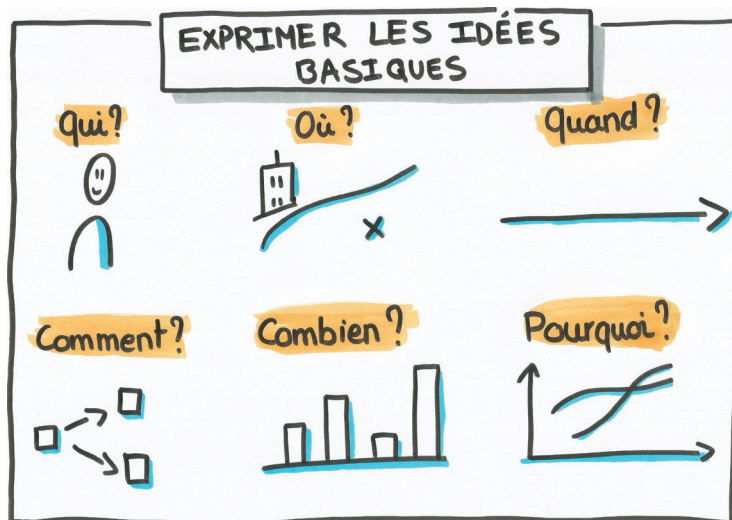 EXPRIMER LES IDÉES
BASIQUES
Qui?
Où?
Quand?
Comment?
Combien?
Pourquoi?